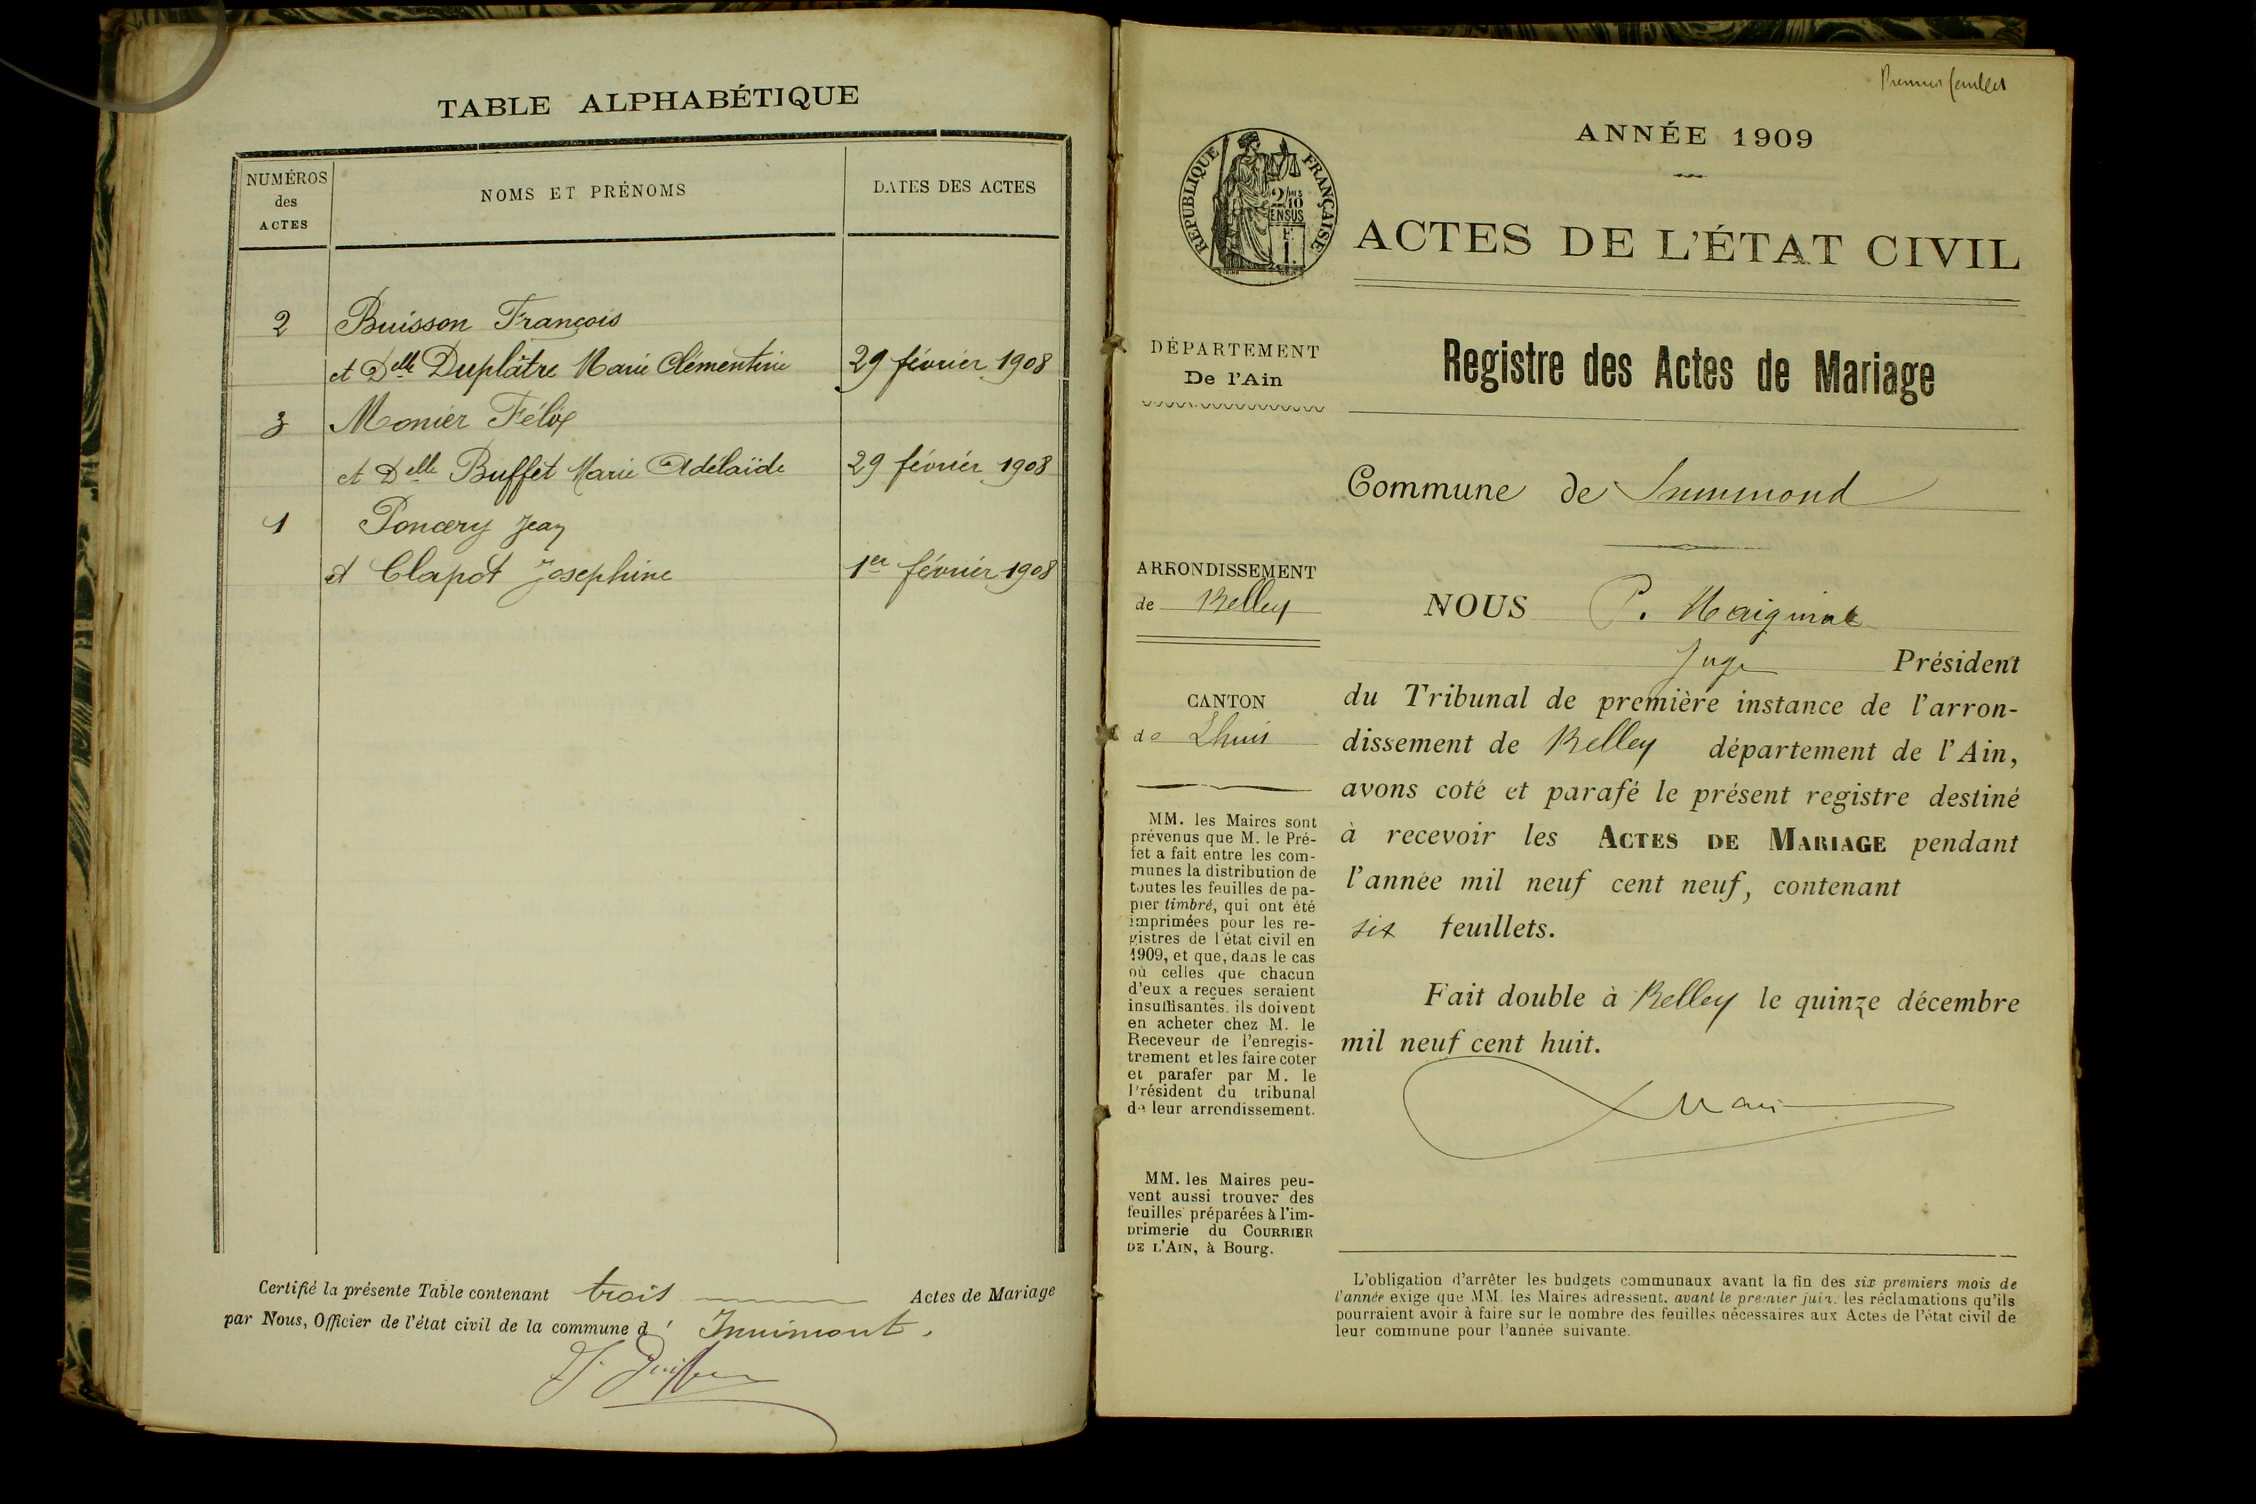 TABLE ALPHABÉTIQUE
NUMÉROS des ACTES
NOMS ET PRÉNOMS
DATES DES ACTES
2 Buisson François
et Delle Duplâtre Marie Clémentine 29 février 1908
3 Monier Félix
et Delle Buffet Marie Adélaïde 29 février 1908
1 Poncery Jean
et Clapot Josephine 1er février 1908
Certifié la présente Table contenant trois Actes de Mariage
par Nous, Officier de l'état civil de la commune d' Innimont.
Premier feuillet
ANNÉE 1909
RÉPUBLIQUE FRANÇAISE
2/10
EN SUS
1
ACTES DE L'ÉTAT CIVIL
DÉPARTEMENT
De l'Ain
Registre des Actes de Mariage
Commune de Innimond
ARRONDISSEMENT
de Belley
NOUS P.
Juge Président
CANTON
de Lhuis
du Tribunal de première instance de l'arron-
dissement de Belley département de l'Ain,
avons coté et parafé le présent registre destiné
à recevoir les ACTES DE MARIAGE pendant
l'année mil neuf cent neuf, contenant
six feuillets.
Fait double à Belley le quinze décembre
mil neuf cent huit.
MM. les Maires sont
prévenus que M. le Pré-
fet a fait entre les com-
munes la distribution de
toutes les feuilles de pa-
pier timbré, qui ont été
imprimées pour les re-
gistres de l'état civil en
1909, et que, dans le cas
où celles que chacun
d'eux a reçues seraient
insuffisantes, ils doivent
en acheter chez M. le
Receveur de l'enregis-
trement et les faire coter
et parafer par M. le
Président du tribunal
de leur arrondissement.
MM. les Maires peu-
vent aussi trouver des
feuilles préparées à l'im-
primerie du COURRIER
DE L'AIN, à Bourg.
L'obligation d'arrêter les budgets communaux avant la fin des six premiers mois de
l'année exige que MM. les Maires adressent, avant le premier juin, les réclamations qu'ils
pourraient avoir à faire sur le nombre des feuilles nécessaires aux Actes de l'état civil de
leur commune pour l'année suivante.